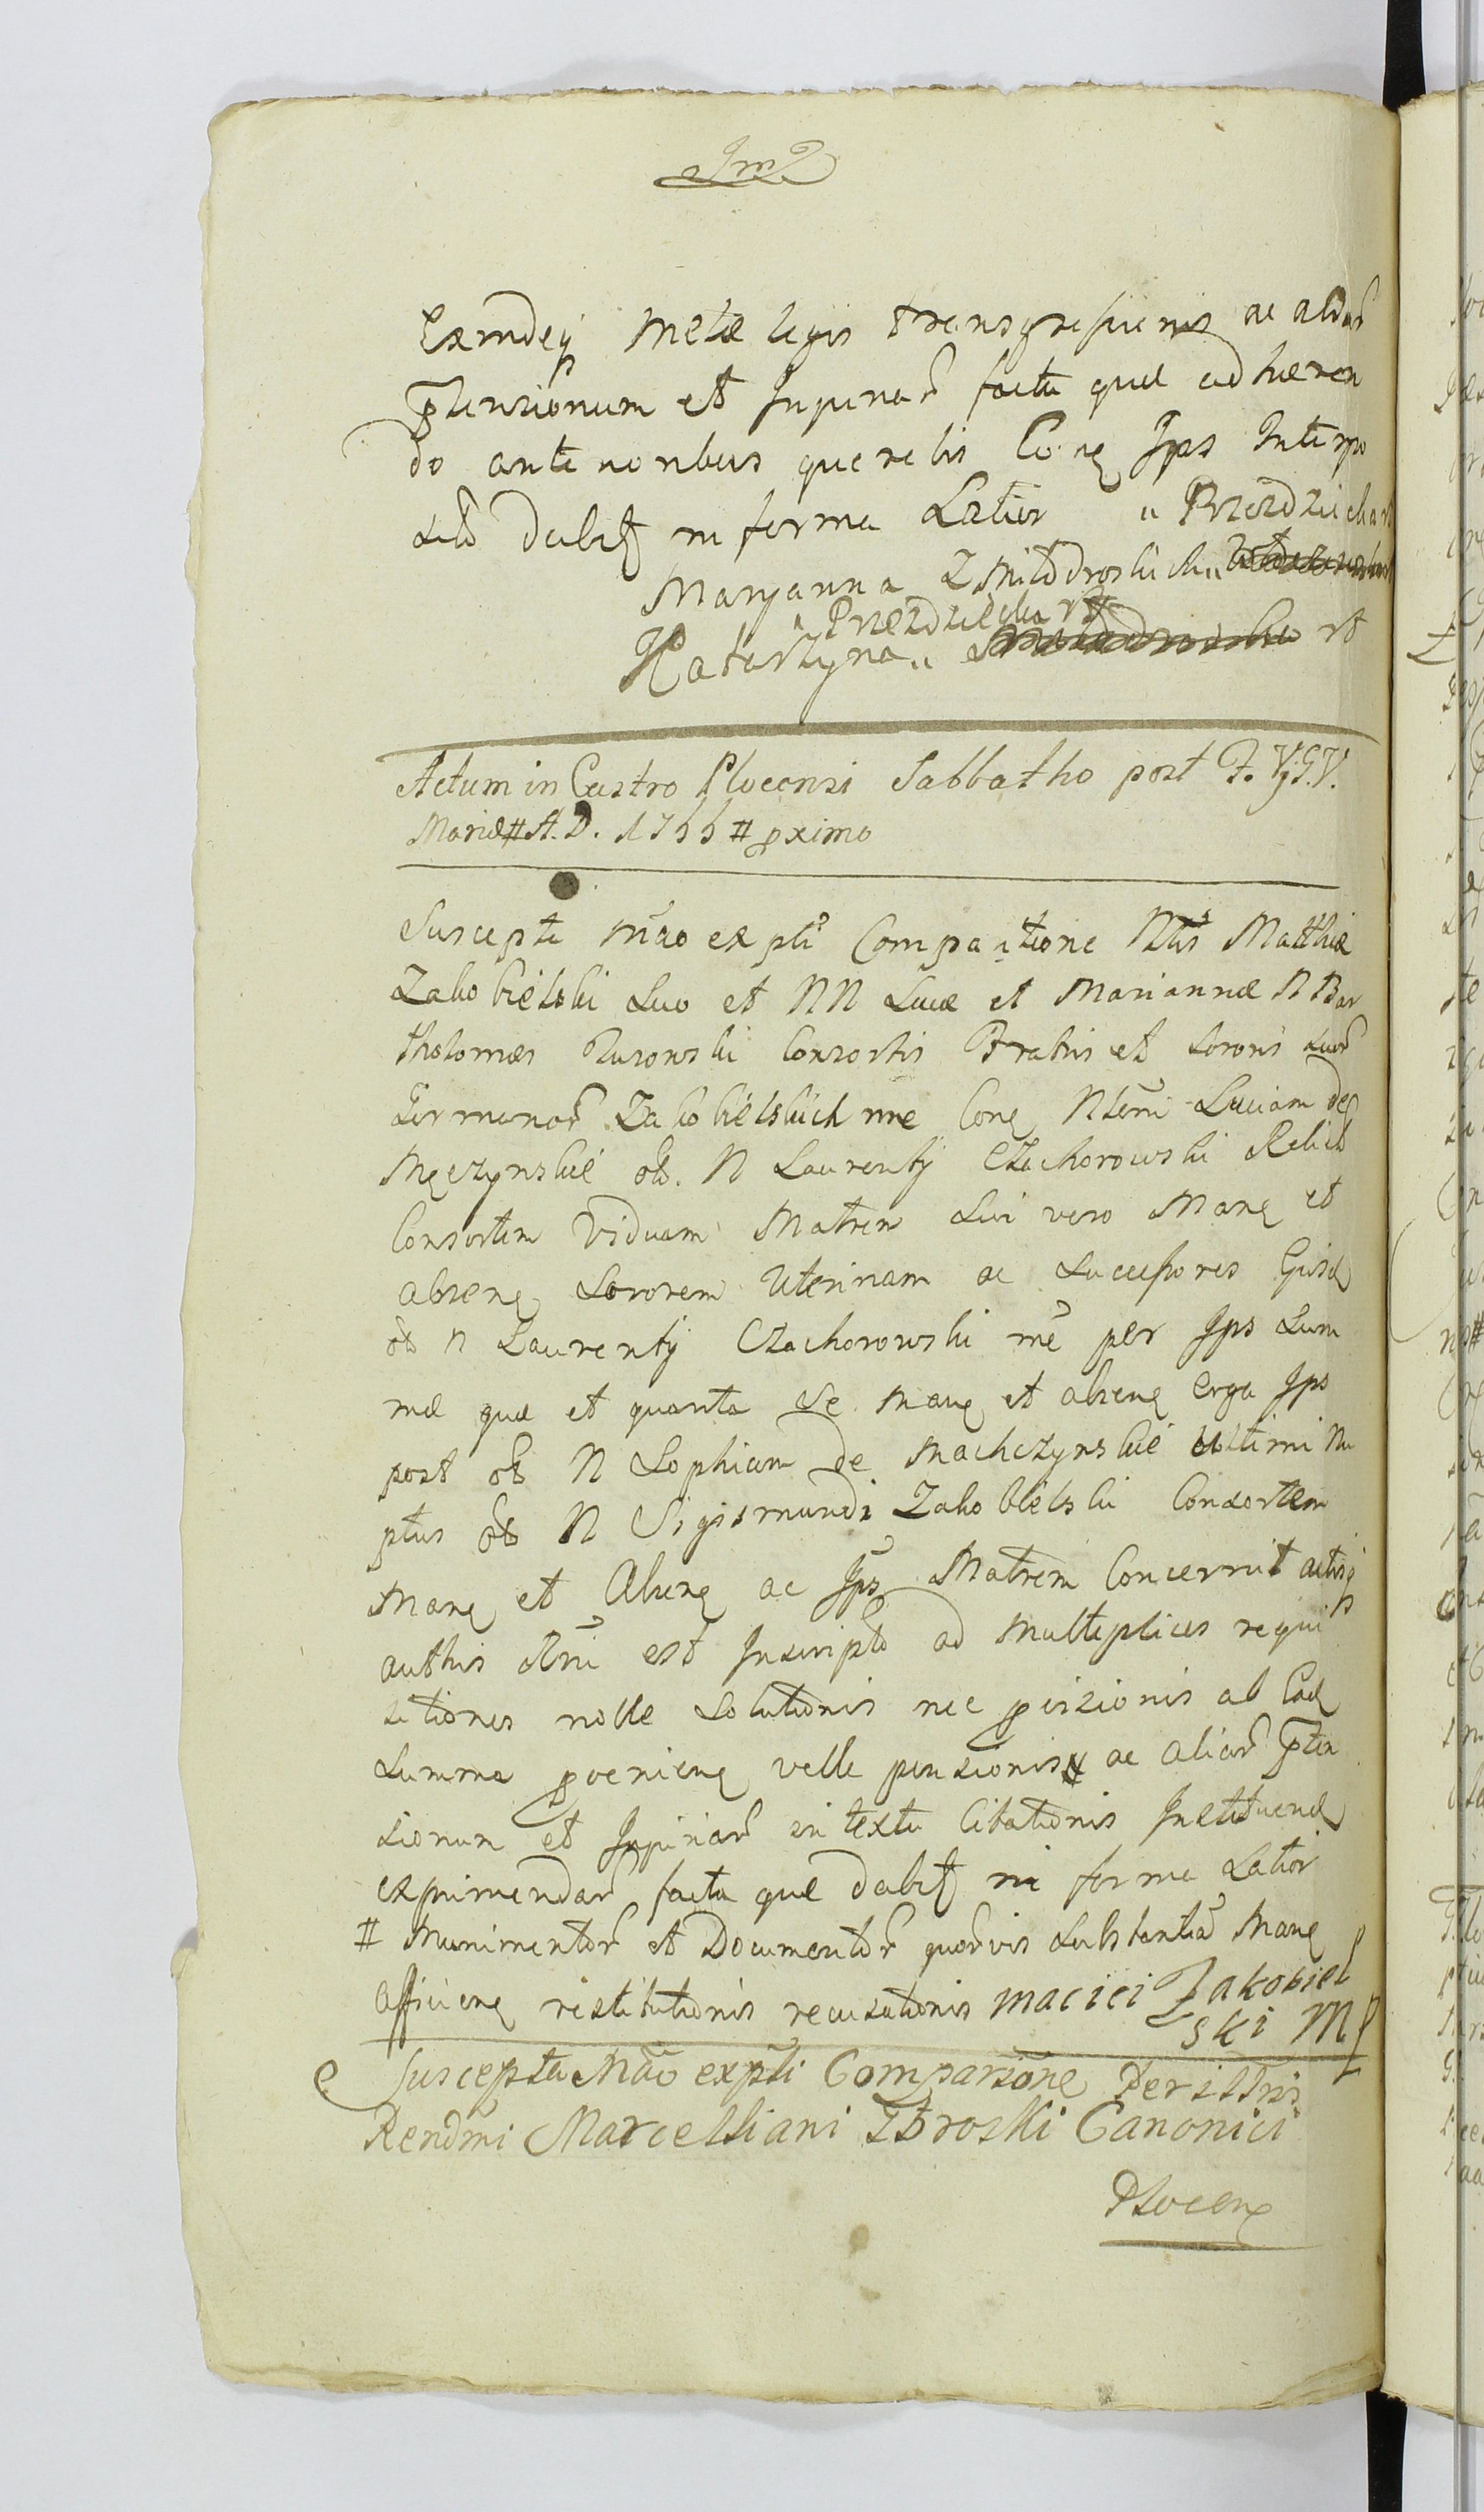 Jm2
Exmdeq Metæ legis transgressionis ac aliar
ptensionum et Injuriar facta quæ adhæren
do anterioribus querelis Conq Jps Interpo
sit dabit in forma Latior " Przezdziecka
Maryanna Z
" Przezdziecka
Katarzyna "
Actum in Castro Plocensi Sabbatho post F. V. G. V.
Mariæ # A. D. 1755 # pximo
Suscepta mão ex pti Comparitione Nblis Matthiæ
Zakobielski Suo et NN Lucæ et Mariannæ N Bar
tholomæi Zurowski Consortis Fratris et Sororis suor
Germanor Zakobielskich nne Conq Nblem Luciam de
Męczynskie ob. N Laurentÿ Czachorowski Relict
Consortem Viduam Matrem Sui vero Manq et
absenq Sororem Uterinam ac Successores Ejusd
ob N Laurentÿ Czachorowski nne per Jps Sum
mæ quæ et quanta Se Manq et absenq erga Jps
post ob N Sophiam de Machczynskie Ultimi Nu
ptus ob N Sigismundi Zakobielski Consortem
Manq et Absenq ac Jps Matrem Concernit actisq
authis est Inscripta ad Multiplices requi
sitiones nolle Solutionis nec pvisionis ab Ead
Summa pvenienq velle pensionis # ac aliar pten
sionum et Injuriar in textu Citationis Instituend
exprimendar facta quæ dabit in forma Latior
# Munimentor et Documentor quorvis Substantiã Manq
afficienq restitutionis recusationis Maciei Zakobiel
ski Mp
Suscepta Mão expti Comparisone Perilltris
Rendmi Marcelliani Zbroski Canonici
Plocenq